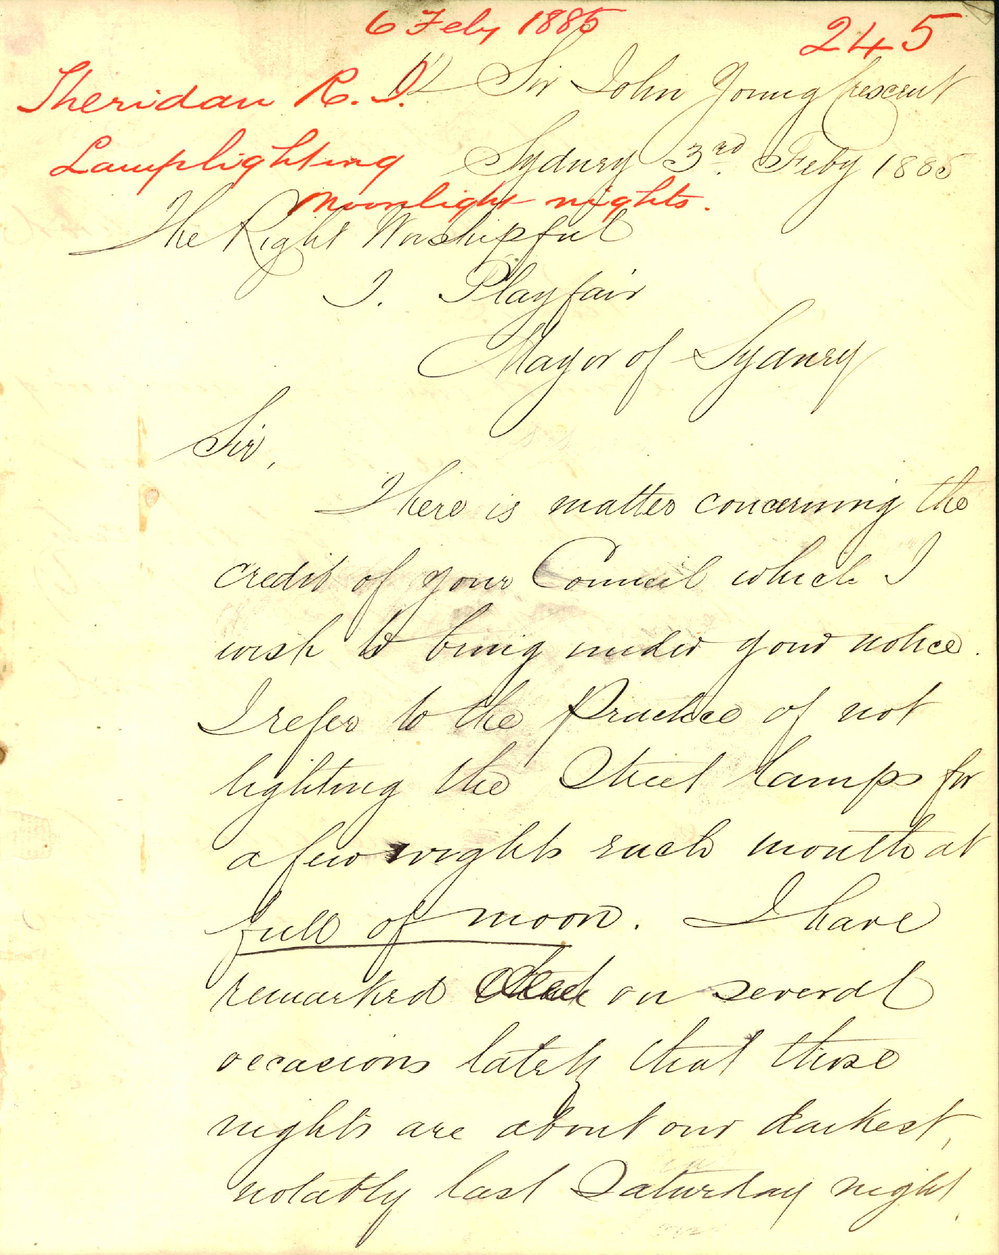 6 Feby 1885
245
Sheridan R. I.
Lamplighting
Moonlight nights.
12 Sir John Young Crescent
Sydney 3rd. Feby 1885
The Right Worshipful
T. Playfair
Mayor of Sydney
Sir,
There is matter concerning the
credit of your Council which I
wish to bring under your notice.
I refer to the Practice of not
lighting the Street lamps for
a few nights each month at
full of moon. I have
remarked on several
occasions lately that those
nights are about our darkest,
notably last Saturday night.